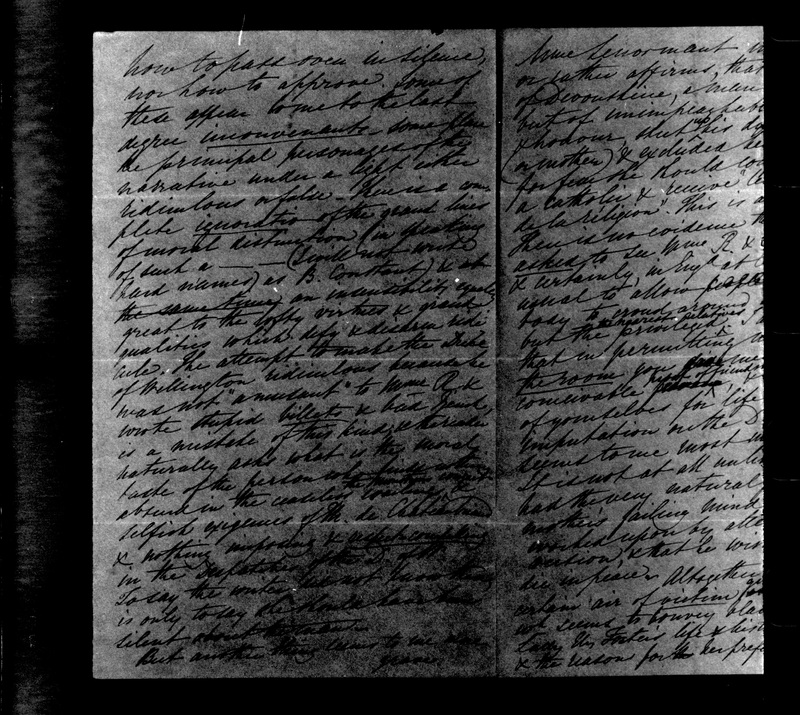 how to pass over in silence,
nor how to approve. Some of
these appear to me to the last
degree inconvenants some place
the principal personages of the
narrative under a light either
ridiculous or false - There is a com
plete ignoration of the grand lines
of moral distinction (in speaking
of such a —— (I will not write
hard names) as B. Constant) & at
the same time an insensibility equally
great to the lofty virtues & grand
qualities which defy & disarm ridi
cule. The attempt to make the Duke
of Wellington ridiculous because he
was not "amusant" to Mme R. &
wrote stupid billets & bad French,
is a mistake of this kind, & the reader
naturally asks what is the moral
taste of the person who finds
absurd in the ceaseless
selfish exigences of M. de Chateaubriand
& nothing imposing &
in the Dispatches of the D. of W.
To say the writer does not know them
is only to say she should have been
silent about the man.
But another thing seems to me more
grave.
Mme Lenormant
or rather affirms, that
of Devonshire, a man
but of unimpeachable
& honour, shut up his
(or mother) & excluded her
for fear she should
a catholic & receive
de la religion". This is a
There is no evidence
asked to see Mme R. &
& certainly in Engd at
equal to allow
body to crowd around
but the privileged
that in permitting
the room you
conceivable
of yourselves for life
imputation on the D
seems to me most
It is not at all unlik
had the very natural
mother's failing mind
worked upon by
version, & that he wis
die in peace. Altogether
certain air of victim
not seems to convey bla
Lady Eliz Foster's life & hist
& the reason for her pref